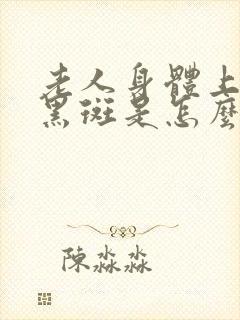 老人身體上
黑斑是怎麼
陳淼淼